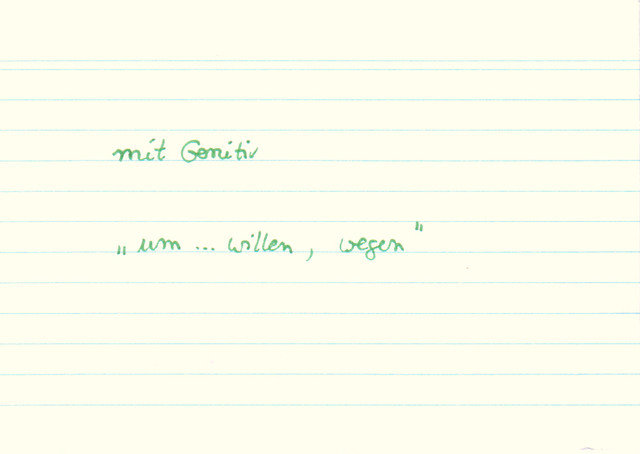 mit Genitiv
„um ... willen, wegen"